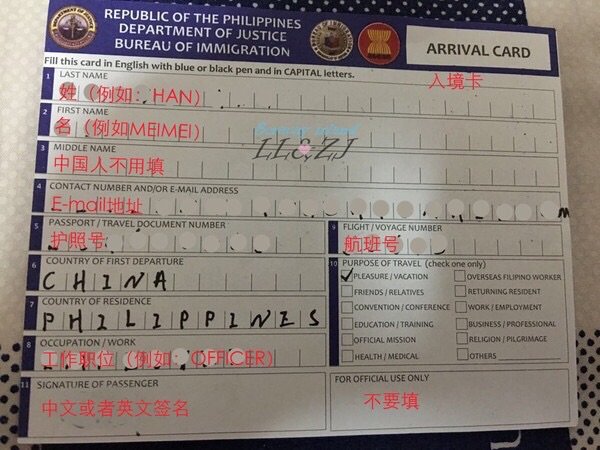 REPUBLIC OF THE PHILIPPINES
DEPARTMENT OF JUSTICE
BUREAU OF IMMIGRATION
ARRIVAL CARD
Fill this card in English with blue or black pen and in CAPITAL letters.
入境卡
1 LAST NAME
姓（例如：HAN）
2 FIRST NAME
名（例如MEIMEI）
LL&ZJ
3 MIDDLE NAME
中国人不用填
4 CONTACT NUMBER AND/OR E-MAIL ADDRESS
E-mail地址
5 PASSPORT / TRAVEL DOCUMENT NUMBER
护照号
9 FLIGHT / VOYAGE NUMBER
航班号
6 COUNTRY OF FIRST DEPARTURE
CHINA
7 COUNTRY OF RESIDENCE
PHILIPPINES
8 OCCUPATION / WORK
工作职位（例如：OFFICER）
10 PURPOSE OF TRAVEL (check one only)
PLEASURE / VACATION
OVERSEAS FILIPINO WORKER
FRIENDS / RELATIVES
RETURNING RESIDENT
CONVENTION / CONFERENCE
WORK / EMPLOYMENT
EDUCATION / TRAINING
BUSINESS / PROFESSIONAL
OFFICIAL MISSION
RELIGION / PILGRIMAGE
HEALTH / MEDICAL
OTHERS
11 SIGNATURE OF PASSENGER
中文或者英文签名
FOR OFFICIAL USE ONLY
不要填